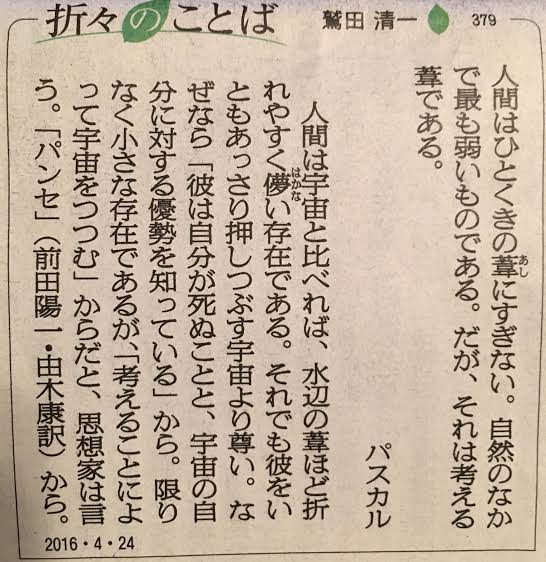 折々のことば 鷲田 清一 379
人間はひとくきの葦にすぎない。自然のなか
で最も弱いものである。だが、それは考える
葦である。
パスカル
人間は宇宙と比べれば、水辺の葦ほど折
れやすく儚い存在である。それでも彼をい
ともあっさり押しつぶす宇宙より尊い。な
ぜなら「彼は自分が死ぬことと、宇宙の自
分に対する優勢を知っている」から。限り
なく小さな存在であるが、「考えることによ
って宇宙をつつむ」からだと、思想家は言
う。「パンセ」(前田陽一・由木康訳)から。
2016・4・24